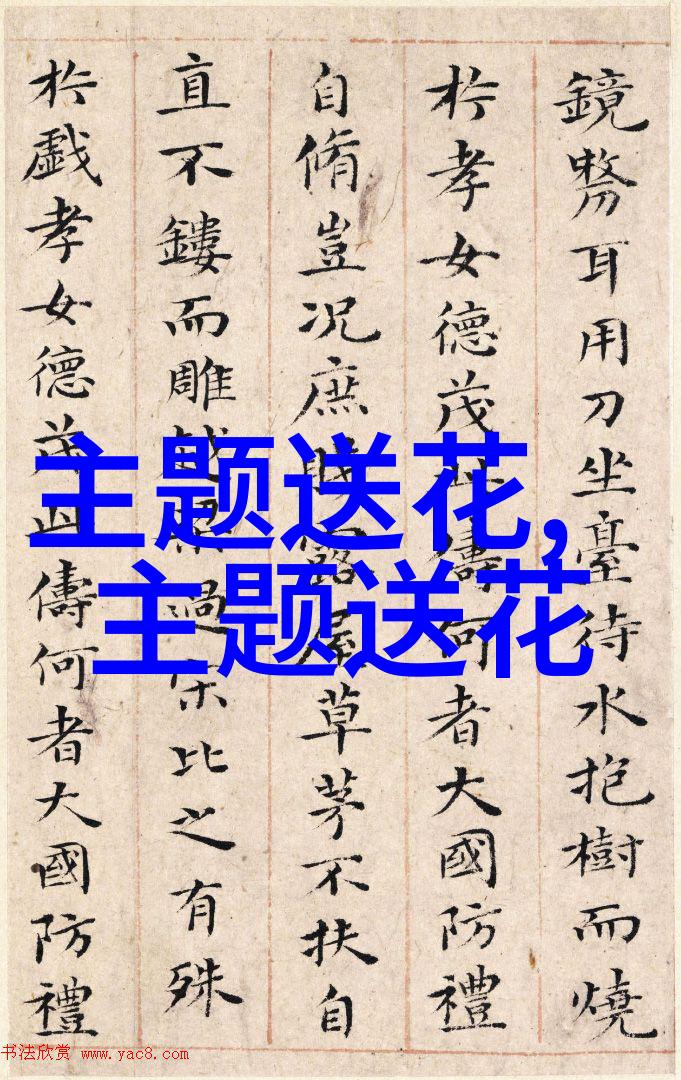 鏡剺耳用刀坐臺待水抱樹而燒
於孝女德茂此儔何者大國防禮
自脩豈況庶賤露屋草茅不扶自
直不鏤而雕越梁過宋比之有殊
於戲孝女德茂此儔何者大國防禮
主题送花,
主题送花
书法欣赏 www.yac8.com